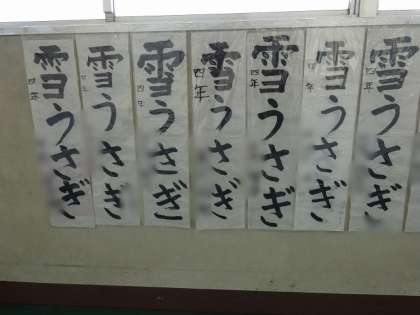 雪うさぎ
四年
雪うさぎ
四年
雪うさぎ
四年
雪うさぎ
四年
雪うさぎ
四年
雪うさぎ
四年
雪うさぎ
四年